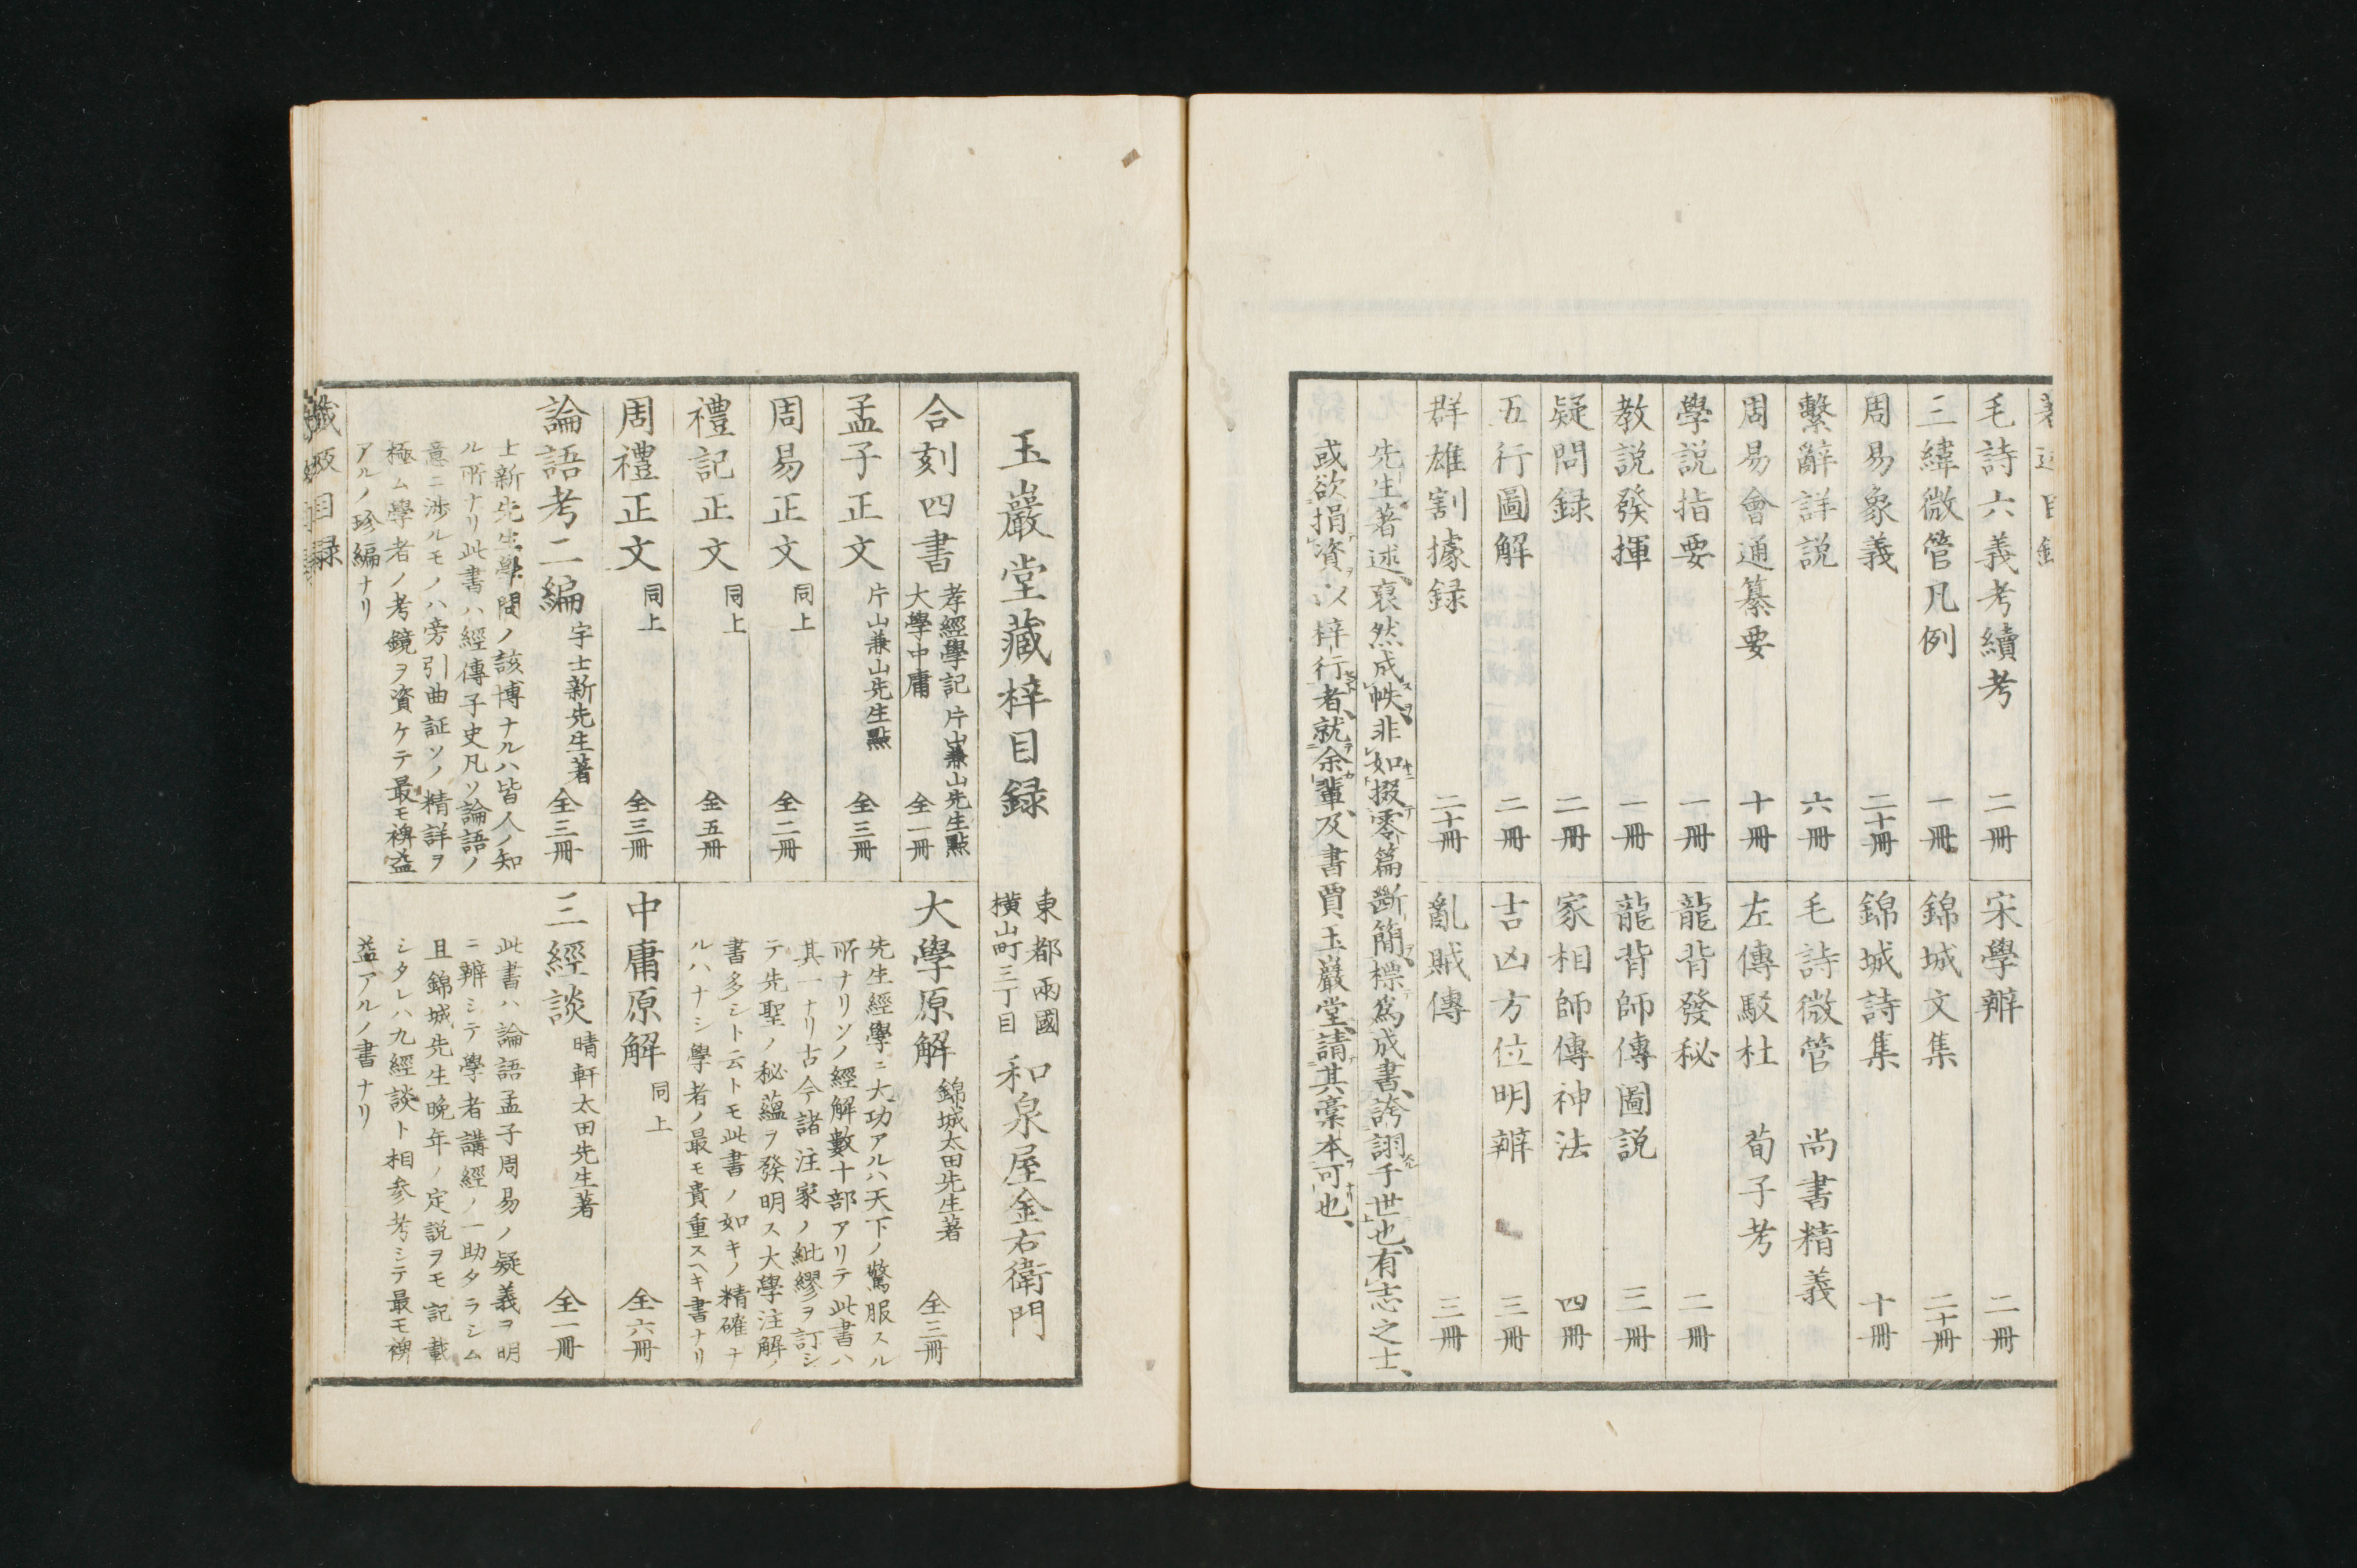 著述目録
毛詩六義考續考 二冊
宋學辨 二冊
三緯微管凡例 一冊
錦城文集 二十冊
周易象義 二十冊
錦城詩集 十冊
繫辭詳説 六冊
毛詩微管 尚書精義
周易會通纂要 十冊
左傳駁杜 荀子考
學説指要 一冊
龍背發秘 二冊
教説發揮 一冊
龍背師傳圖説 三冊
疑問録 二冊
家相師傳神法 四冊
五行圖解 二冊
吉凶方位明辨 三冊
群雄割據録 二十冊
亂賊傳 三冊
先生著述、裒然成帙、非如掇零篇斷簡、標爲成書、誇詡于世也、有志之士、
或欲捐資以梓行者、就余輩、及書賈玉巖堂、請其稾本可也、
玉巖堂藏梓目録 東都兩國
横山町三丁目 和泉屋金右衛門
合刻四書 孝經學記
大學中庸 片山兼山先生點 全一冊
孟子正文 片山兼山先生點 全三冊
周易正文 同上 全二冊
禮記正文 同上 全五冊
周禮正文 同上 全三冊
論語考二編 宇士新先生著 全三冊
士新先生學問ノ該博ナルハ皆人ノ知
ル所ナリ此書ハ經傳子史凡ソ論語ノ
意ニ渉ルモノハ旁引曲証ソノ精詳ヲ
極ム學者ノ考鏡ヲ資ケテ最モ裨益
アルノ珍編ナリ
大學原解 錦城太田先生著 全三冊
先生經學ニ大功アルハ天下ノ驚服スル
所ナリソノ經解數十部アリテ此書ハ
其一ナリ古今諸注家ノ紕繆ヲ訂シ
テ先聖ノ秘蘊ヲ發明ス大學注解ノ
書多シト云トモ此書ノ如キノ精確ナ
ルハナシ學者ノ最モ貴重スヘキ書ナリ
中庸原解 同上 全六冊
三經談 晴軒太田先生著 全一冊
此書ハ論語孟子周易ノ疑義ヲ明
ニ辨シテ學者講經ノ一助タラシム
且錦城先生晩年ノ定説ヲモ記載
シタレハ九經談ト相参考シテ最モ裨
益アルノ書ナリ
藏板目録